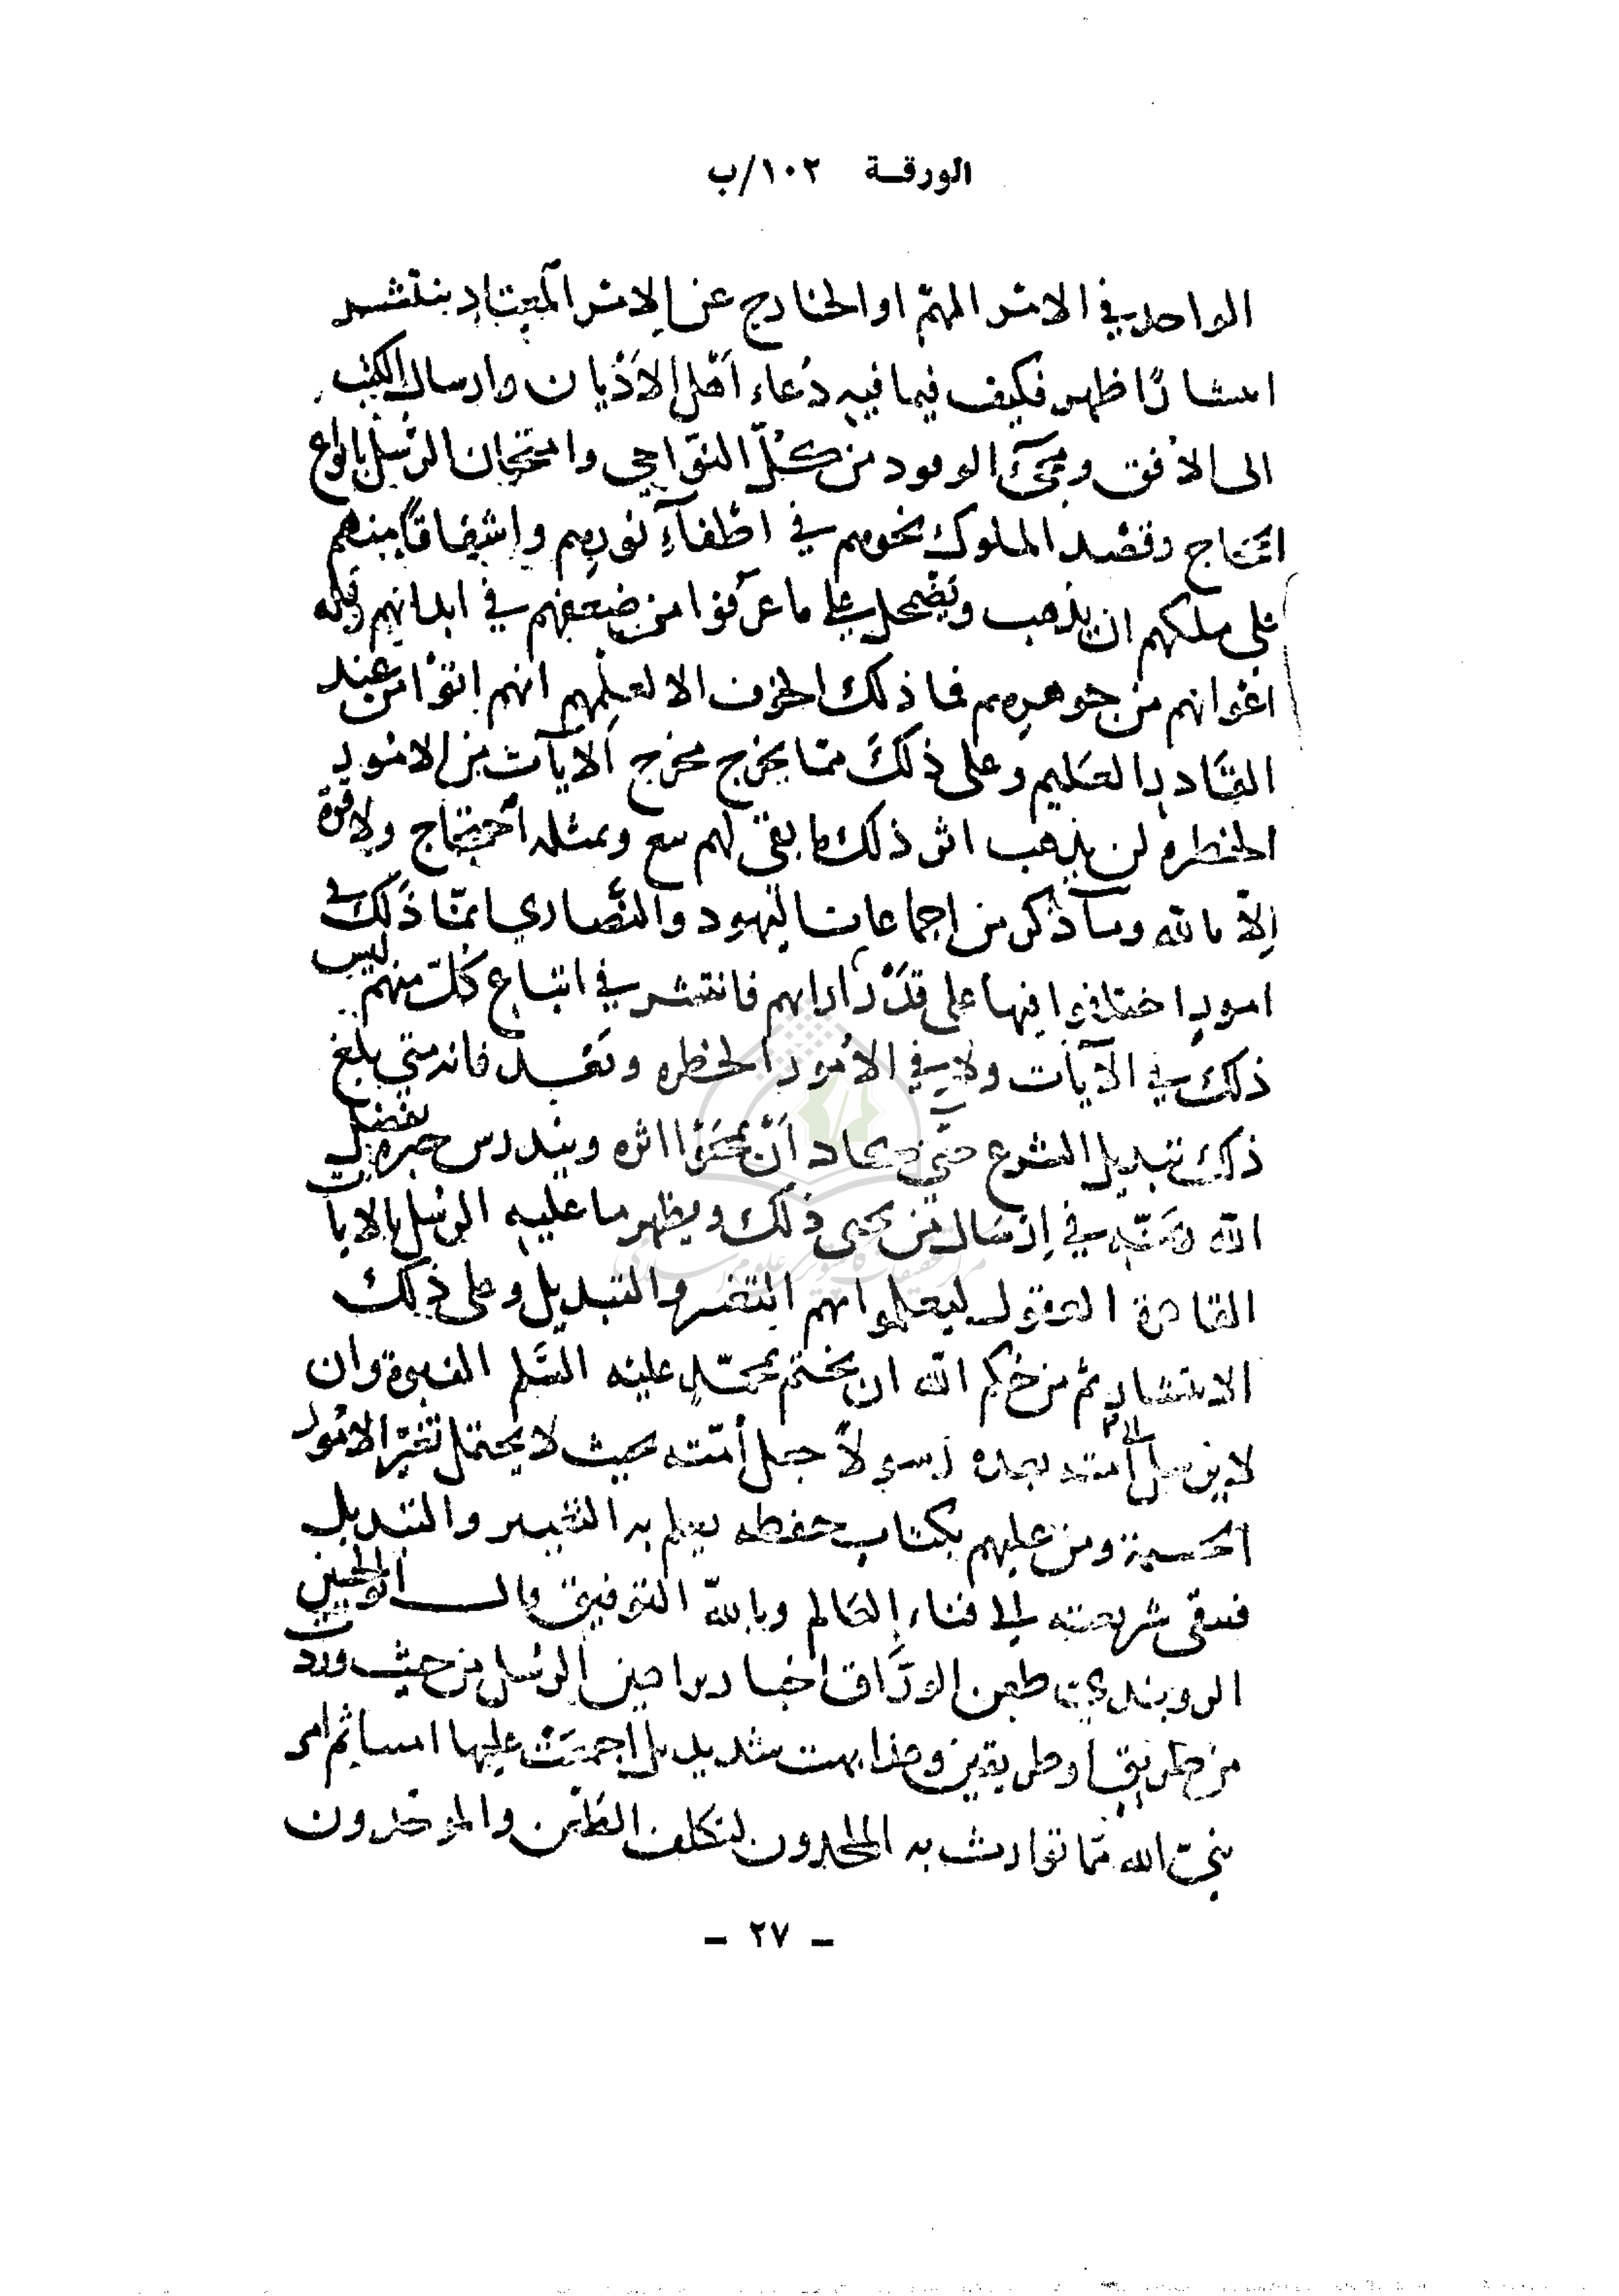 الورقـة ١٠٢/ب
الواحد في الامر المهم او الخارج عن الامر المعتاد ينتشر
انتشارًا ظهر فكيف فيما فيه دُعاء اَهل الاَدْيان وارسال الكتب
الى الافق ومجئ الوفود من كلّ النّواحي وامتحان الرسل بانواع
الحَجاج وقصد الملوك نحوهم في اطْفاءِ نورهم واشفاقًا منهم
على ملكهم ان يذهب ويضمحل على ما عرفوا من ضعفهم في ابدانهم وقله
اعوانهم من جوهرهم فما ذلك الخوف الا لعلمهم انهم اتوْا من عند
القادر العليم وعلى ذلك مما يخرج مخرج الآيات من الامور
الخطره لن يذهب اثر ذلك ما بقي لهم سع وبمثله احتجاج ولا قوة
اِلّا بالله وسأذكر من اجماعات اليهود والنّصارى انمّا ذلك في
امور اختلفوا فيها على قدْر آرائهم فانتشر في اتباع كلّ منهم ليس
ذلك في الآيات ولا في الامور الخطره وبَعـد فانه متى بلغ
ذلك تبديل الشرع حتى يكاد اَنْ يمحوا اثره ويندرس خبره بفضل
الله ومنّه في اِرسال من يحيى ذلك ويظهر ما عليه الرسل بالايات
القاهرة العقول ليعلموا بهم التغير والتبديل وعلى ذلك
الانتشار ثم من حُكم الله ان يختم بمحمّدٍ عليه السَّلم النبوة وان
لا يرسل الى اُمته بعده رسولًا جعل اُمّته بحيث لا يحتمل تغيّر الامور
الحسية ومن عليهم بكتاب حفظه يعلم به التغيير والتبديل
فتبقى شريعته الى فناء العالم وبالله التوفيق وقال ابو الحسين
الروندي طعن الورّاق اخبار براهين الرسل من حيث وردت
من طريق او طريقين وهذا بهت شديد بل اجمعَتْ عليها انسا ثم امر
نبيّ الله مما توارث به الملحدون لتكلف الطّعن والموحدون
ـ ٢٧ ـ